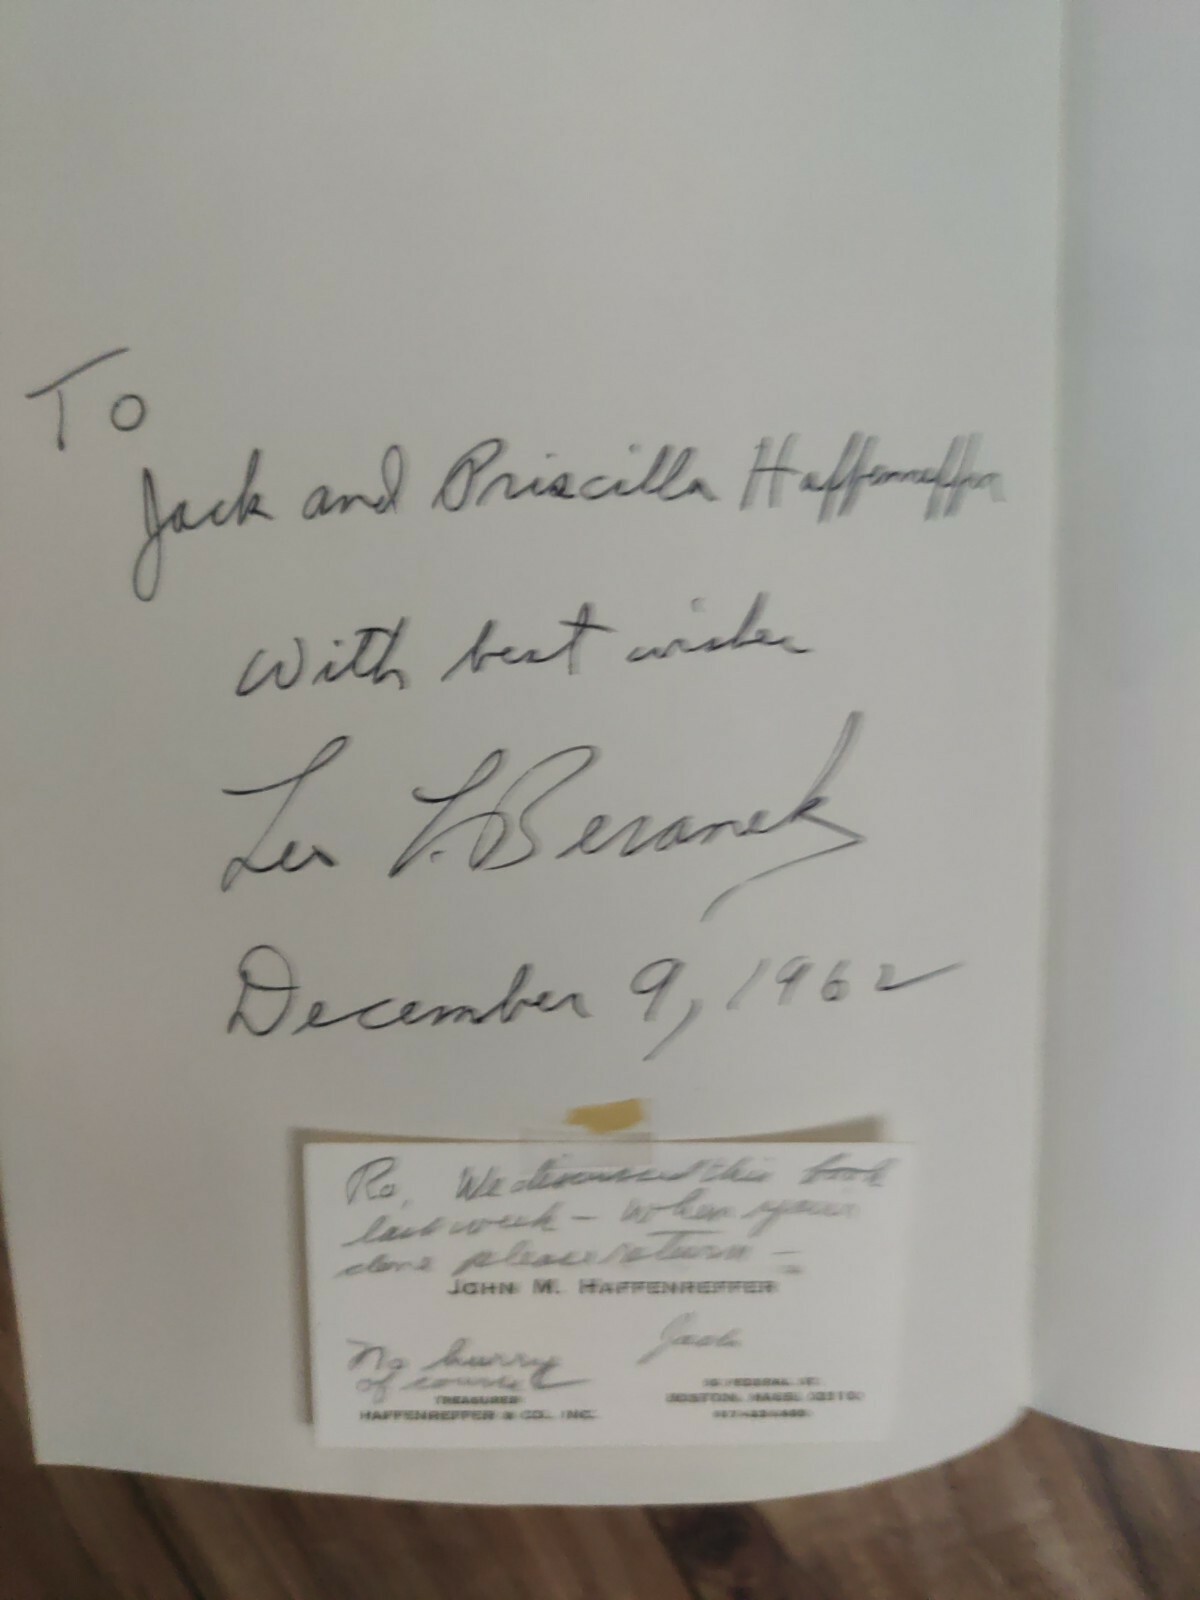 To
Jack and Priscilla Haffenreffer
With best wishes
Leo L. Beranek
December 9, 1962
Re. We discussed this book
last week - when you're
done please return -
JOHN M. HAFFENREFFER
Jack
No hurry
of course
TREASURER
HAFFENREFFER & CO., INC.
10 FEDERAL ST.
BOSTON, MASS.